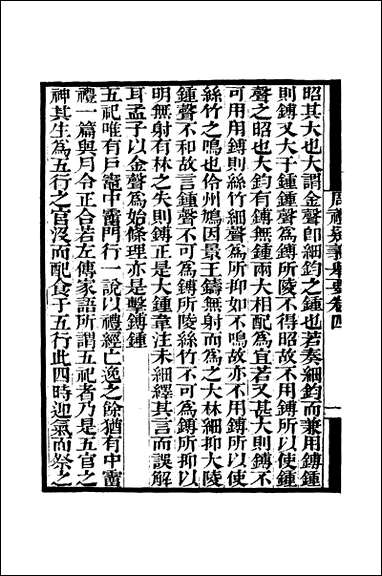 昭其大也大謂金聲卽細鈞之鍾也若奏細鈞而兼用鎛鍾
則鎛又大于鍾鍾聲爲鎛所陵不得昭故不用鎛所以使鍾
聲之昭也大鈞有鎛無鍾兩大相配爲宜若又甚大則鎛不
可用用鎛則絲竹細聲爲所抑如不鳴故亦不用鎛所以使
絲竹之鳴也伶州鳩因景王鑄無射而爲之大林細抑大陵
鍾聲不和故言鍾聲不可爲鎛所陵絲竹不可爲鎛所抑以
明無射有林之失則鎛正是大鍾韋注未細繹其言而誤解
耳孟子以金聲爲始條理亦是擊鎛鍾
五祀唯有戸竈中霤門行一說以禮經亡逸之餘猶有中霤
禮一篇與月令正合若左傳家語所謂五祀者乃是五官之
神其生爲五行之官沒而配食于五行此四時迎氣而祭之
周禮疑義舉要卷四
一